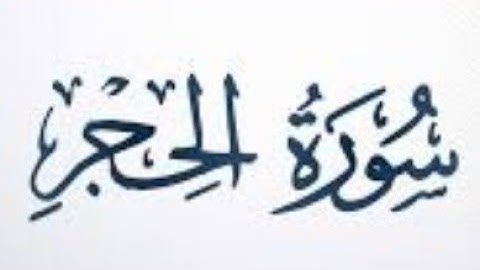 سُورَةُ الحِجْرِ